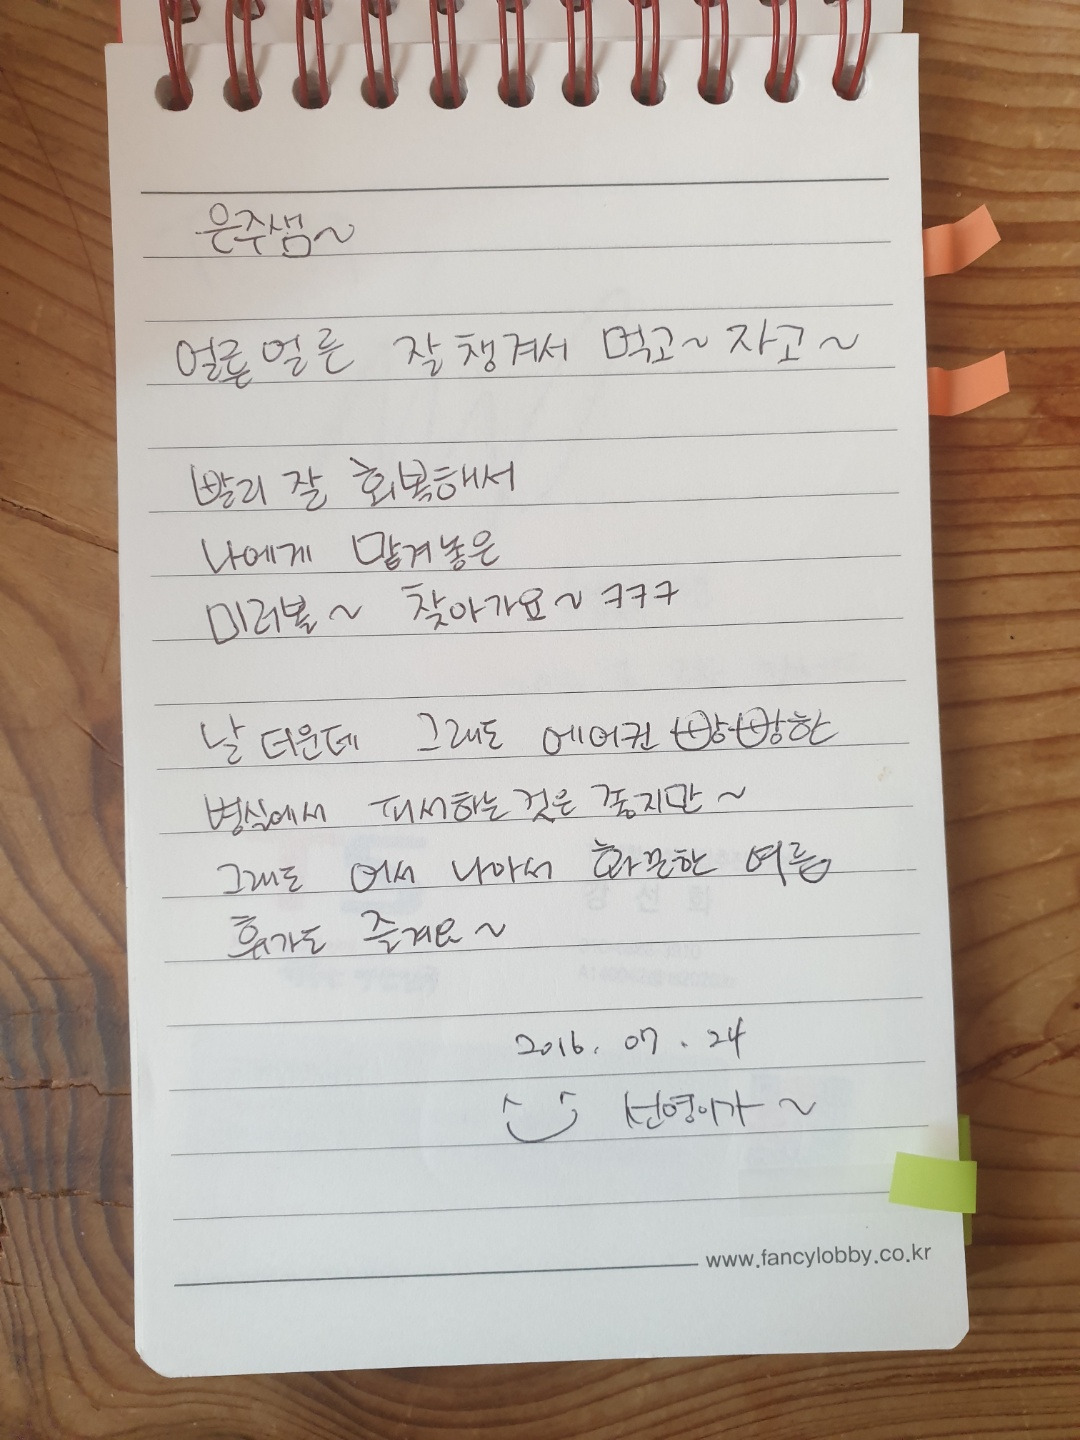 은주샘~
얼른얼른 잘 챙겨서 먹고~ 자고~
빨리 잘 회복해서
나에게 맡겨놓은
미러볼~ 찾아가요~ ㅋㅋㅋ
날 더운데 그래도 에어컨 빵빵한
병실에서 피서하는 것은 좋지만~
그래도 어서 나아서 화끈한 여름
휴가도 즐겨요~
2016. 07. 24
선영이가~
www.fancylobby.co.kr